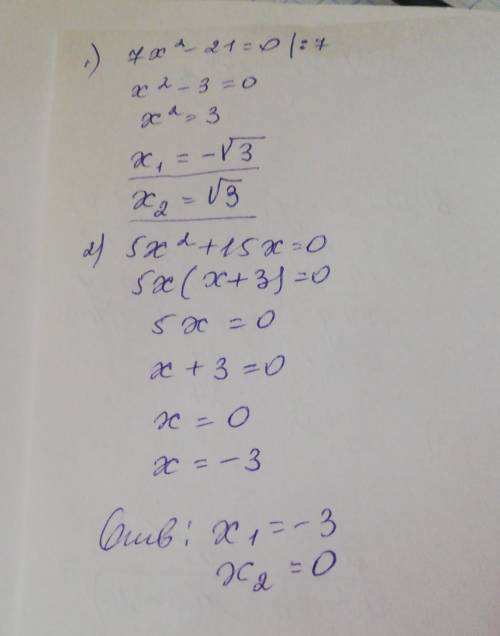 1) 7x² - 21 = 0 |:7
x² - 3 = 0
x² = 3
x₁ = -√3
x₂ = √3
2) 5x² + 15x = 0
5x(x+3) = 0
5x = 0
x + 3 = 0
x = 0
x = -3
Отв: x₁ = -3
x₂ = 0